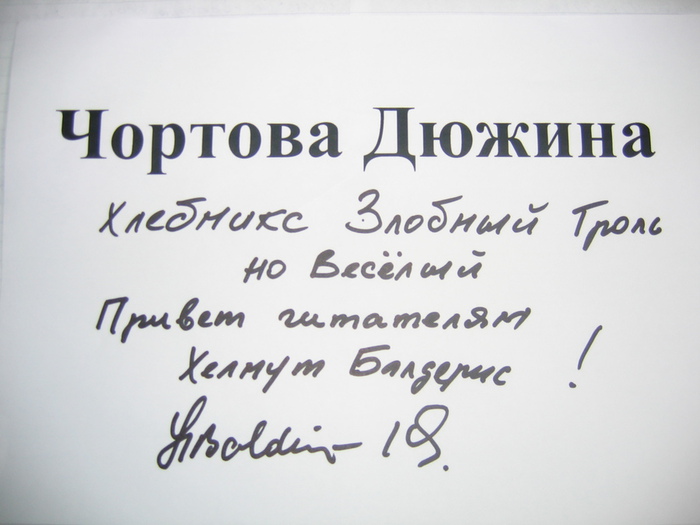 Чортова Дюжина
Хлебникс Злобный Троль
но Весёлый
Привет читателям
Хелмут Балдерис !
HBaldis 19.